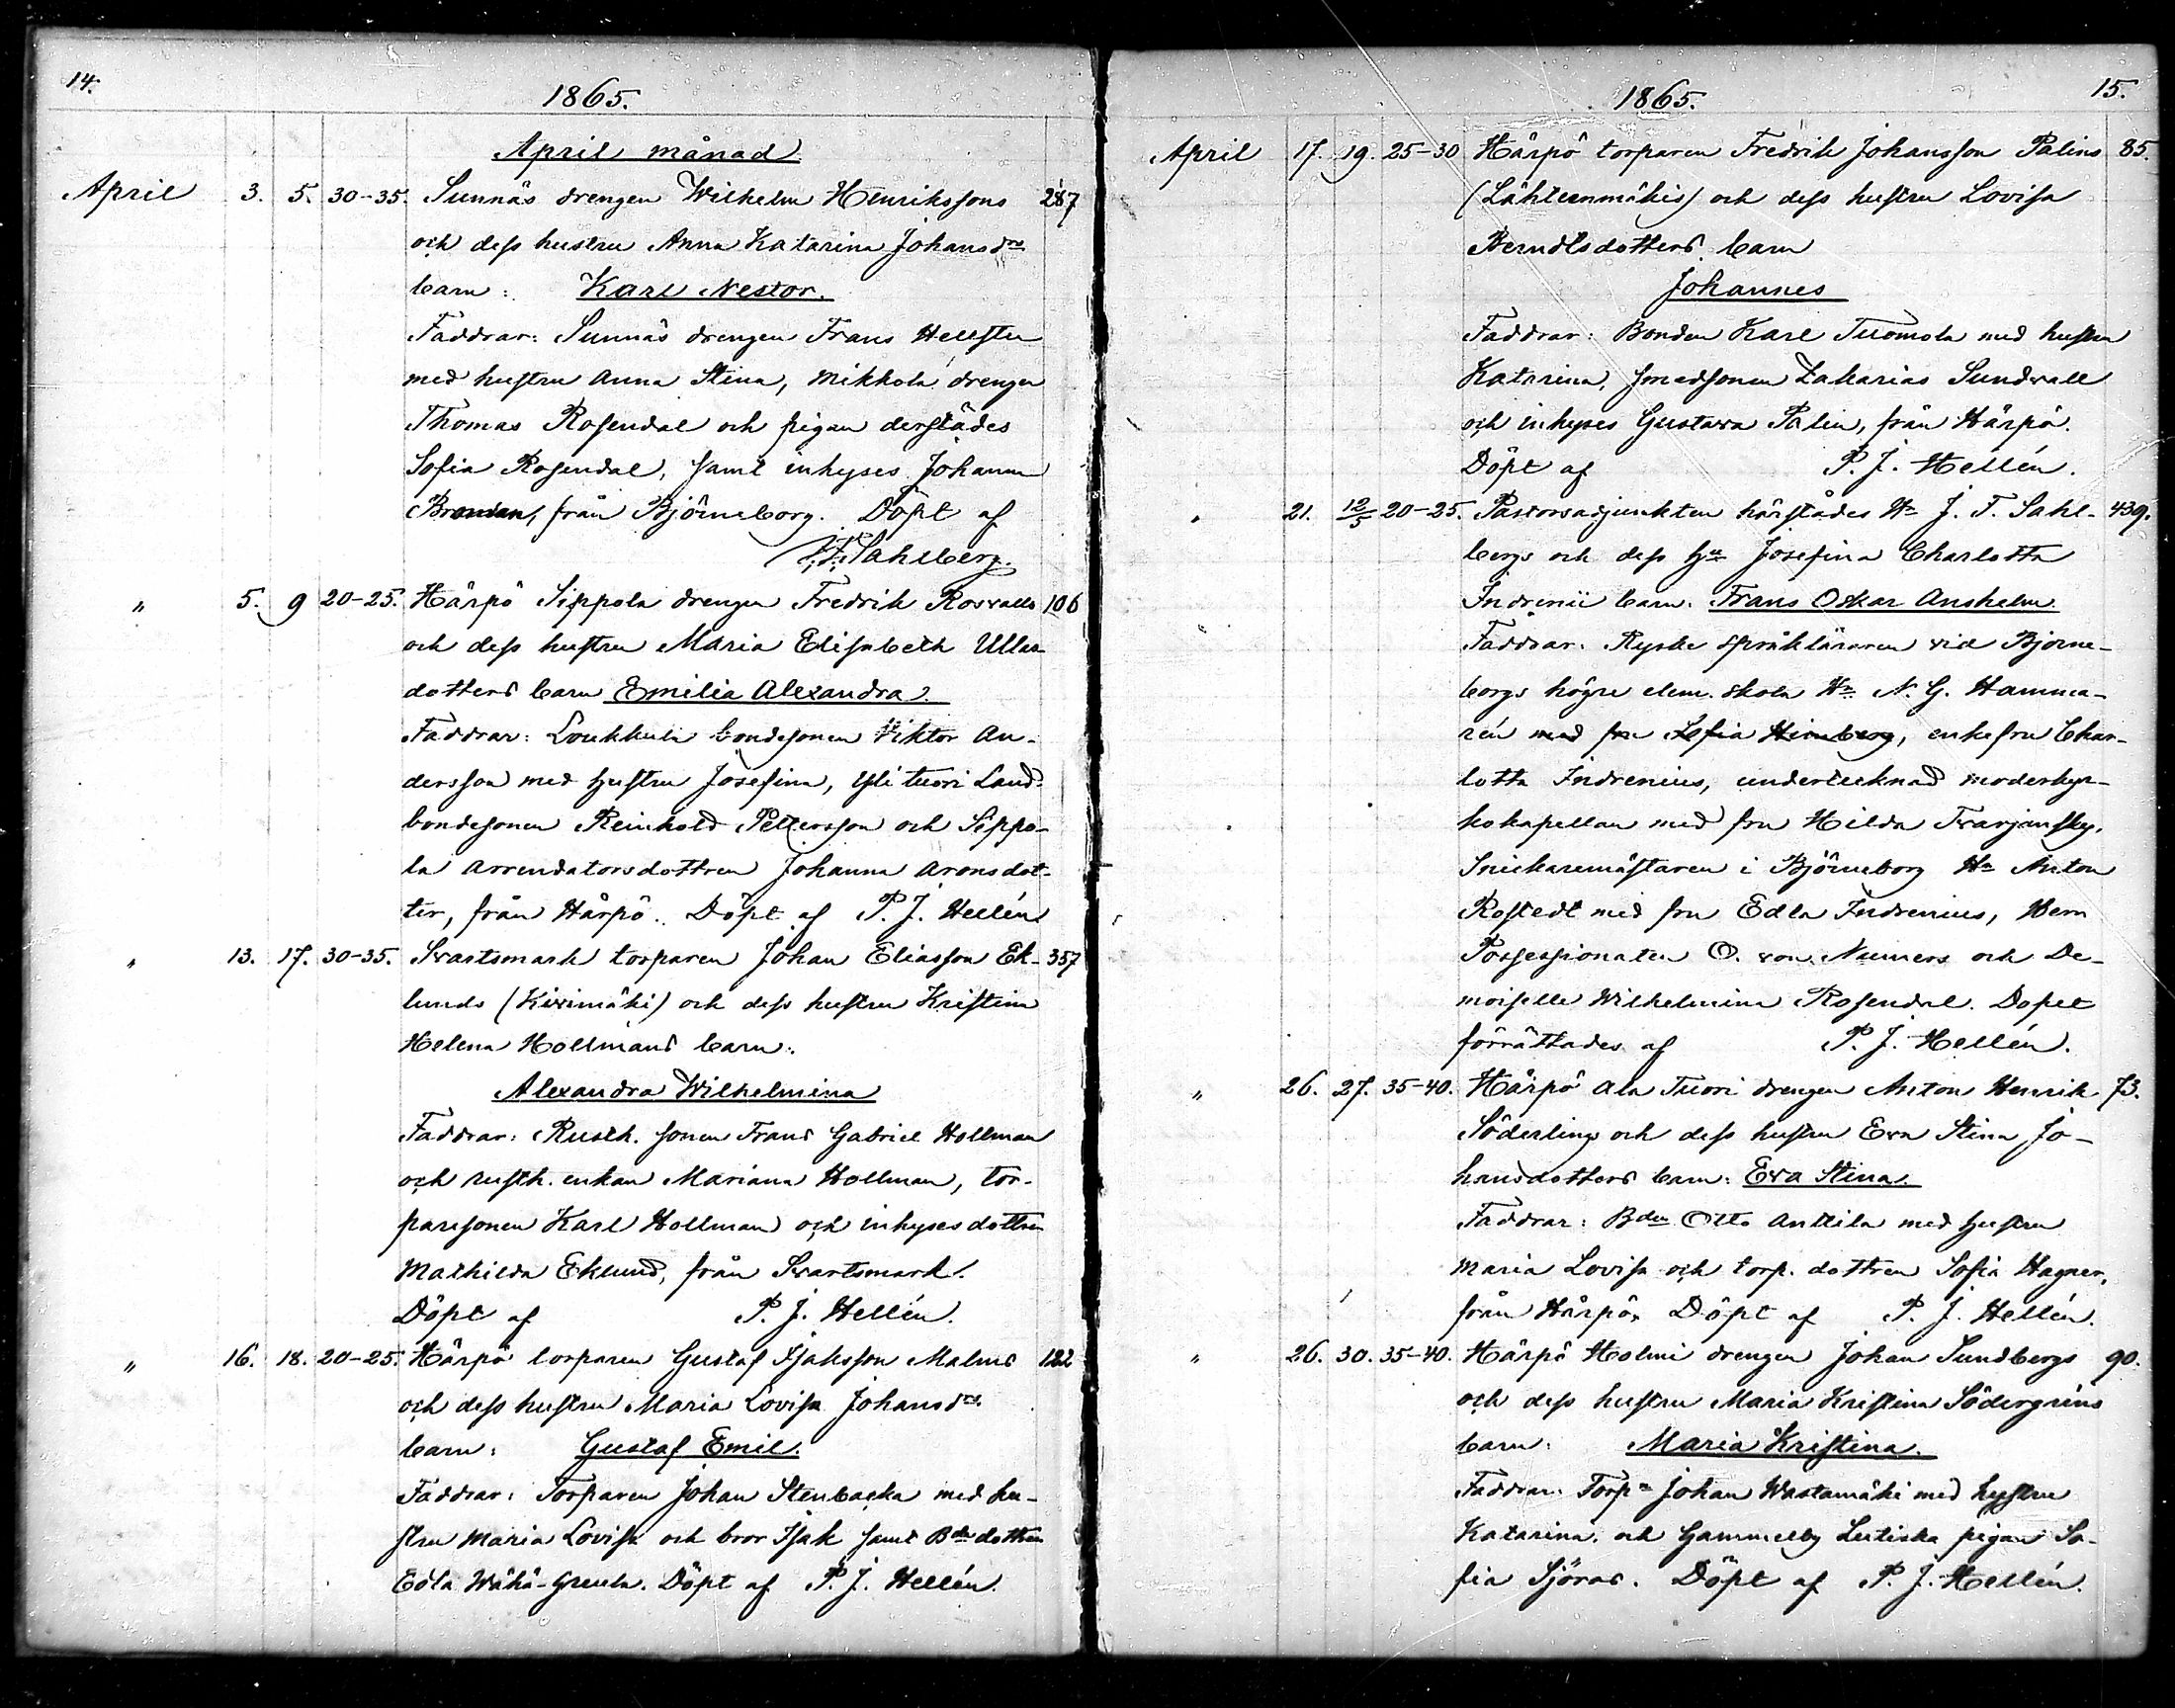 14.
1865.
April månad
April 3. 5. 30-35. Sunnäs drengen Wilhelm Henrikssons 287
och dess hustru Anna Katarina Johansdrs
barn: Karl Nestor.
Faddrar: Sunnäs drengen Frans Hellsten
med hustru Anna Stina, Mikkola drengen
Thomas Rosendal och pigan derstädes
Sofia Rosendal, samt inhyses Johanna
från Björneborg. Döpt af
J. F. Sahlberg.
" 5. 9 20-25. Härpö Sippola drengen Fredrik Rosvalls 106
och dess hustru Maria Elisabeth Ullas-
dotters barn Emilia Alexandra.
Faddrar: Loukkula bondesonen Viktor An-
dersson med hustru Josefina, Yli tuori Land-
bondesonen Reinhold Pettersson och Sippo-
la Arrendatorsdottren Johanna Aronsdot-
ter, från Hårpö. Döpt af P. J. Hellén
" 13. 17. 30-35. Svartsmark torparen Johan Eliasson Ek- 357
lunds (Kivimäki) och dess hustru Kristina
Helena Hollmans barn:
Alexandra Wilhelmina
Faddrar: Rusth. sonen Frans Gabriel Hollman
och rusth. enkan Mariana Hollman, tor-
paresonen Karl Hollman och inhyses dottren
Mathilda Eklund, från Svartsmark.
Döpt af P. J. Hellén.
" 16. 18. 20-25. Härpö torparen Gustaf Isaksson Malms 122
och dess hustru Maria Lovisa Johansdrs
barn: Gustaf Emil.
Faddrar: Torparen Johan Stenbacka med hu-
stru Maria Lovisa och bror Isak samt Bde dottren
Edla Wähä-Greula. Döpt af P. J. Hellén.
1865.
15.
April 17. 19. 25-30 Härpö torparen Fredrik Johansson Palins 85.
(Lähteenmäkis) och dess hustru Lovisa
Berndtsdotters barn
Johannes
Faddrar: Bonden Karl Tuomola med hustru
Katarina, smedsonen Zakarias Sundvall
och inhyses Gustava Palin, från Härpö.
Döpt af P. J. Hellén.
" 21. 12/5 20-25. Pastorsadjunkten härstädes Hr J. F. Sahl- 439.
bergs och dess hu Josefina Charlotta
Indrenii barn: Frans Oskar Anshelm.
Faddrar: Ryske språkläraren vid Björne-
borgs högre elem. skola Hr N. G. Hamma-
rén med fru Sofia Hirnberg, enkefru Char-
lotta Indrenius, undertecknad moderkyr-
kokapellan med fru Hilda Tvarjansky.
Snickaremästaren i Björneborg Hr Anton
Rostedt med fru Edla Indrenius, Herr
Possessionaten O. von Numers och De-
moiselle Wilhelmina Rosendal. Dopet
förrättades af P. J. Hellén.
" 26. 27. 35-40. Härpö Ala Tuori drengen Anton Henrik 73.
Söderling och dess hustru Eva Stina Jo-
hansdotters barn: Eva Stina.
Faddrar: Bden Otto Anttila med hustru
Maria Lovisa och torp. dottren Sofia Hagner,
från Härpö. Döpt af P. J. Hellén.
" 26. 30. 35-40. Härpö Holmi drengen Johan Sundbergs 90.
och dess hustru Maria Kristina Södergréns
barn: Maria Kristina.
Faddrar: Torpn Johan Wastamäki med hustru
Katarina, och Gammelby Leitiska pigan So-
fia Sjöros. Döpt af P. J. Hellén.